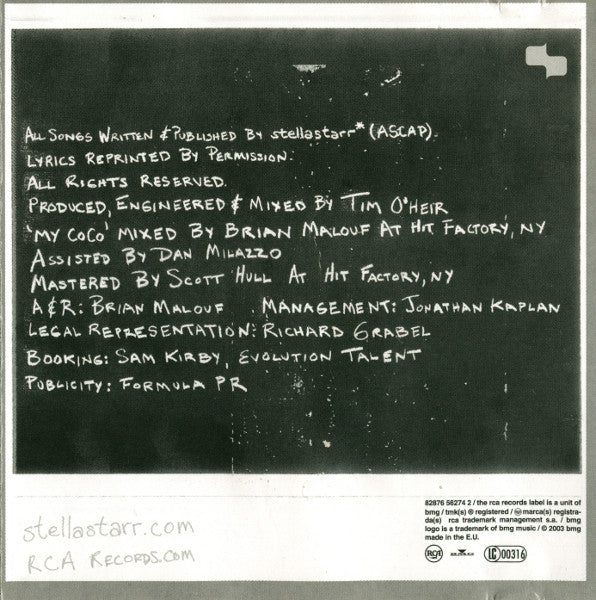 All Songs Written & Published By stellastarr* (ASCAP).
Lyrics Reprinted By Permission.
All Rights Reserved.
Produced, Engineered & Mixed By Tim O'Heir
'My Coco' Mixed By Brian Malouf At Hit Factory, NY
Assisted By Dan Milazzo
Mastered By Scott Hull At Hit Factory, NY
A&R: Brian Malouf . Management: Jonathan Kaplan
Legal Representation: Richard Grabel
Booking: Sam Kirby, Evolution Talent
Publicity: Formula PR
82876 56274 2 / the rca records label is a unit of
bmg / tmk(s) ® registered / marca(s) registra-
da(s) rca trademark management s.a. / bmg
logo is a trademark of bmg music / © 2003 bmg
made in the E.U.
stellastarr.com
RCA Records.com
RCA
LC 00316